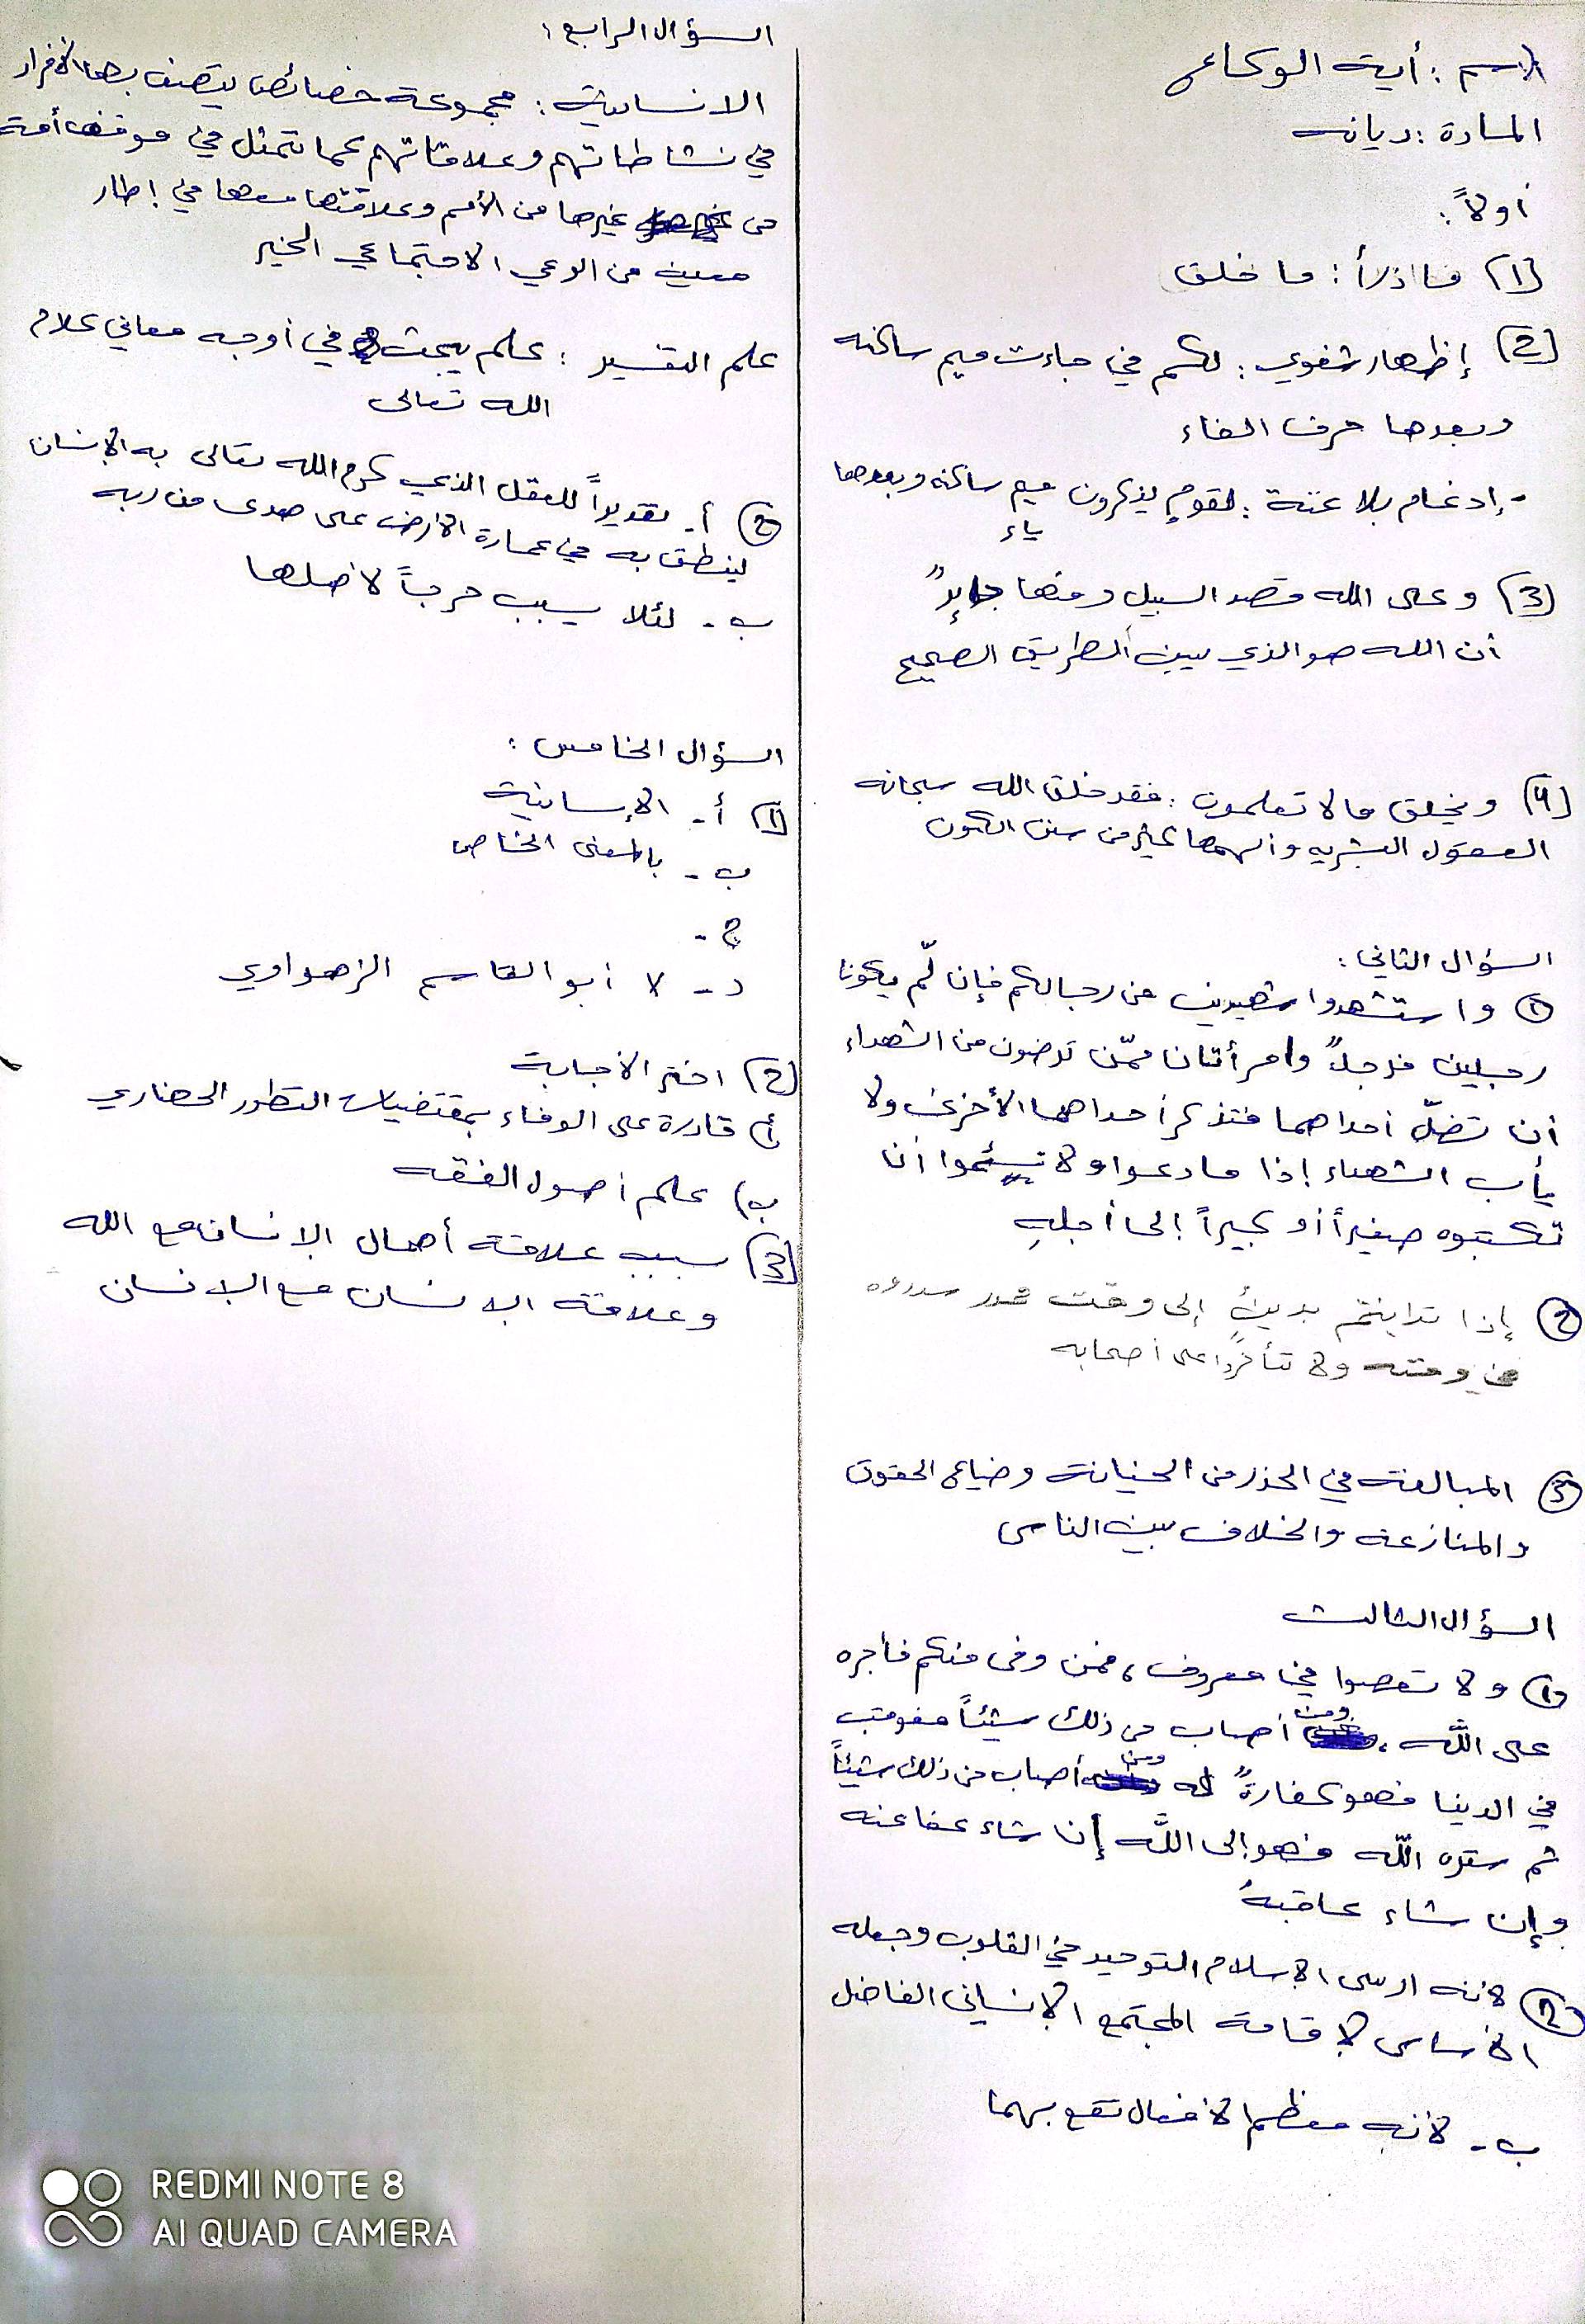 الاسم : أية الوكاع
المادة : ديانه
أولاً :
(1) ما ذرأ : ما خلق
(2) إظهار شفوي : لكم في جاءت ميم ساكنه
وبعدها حرف الفاء
- إدغام بلا غنة : لقومٍ يذكرون ميم ساكنه وبعدها
ياء
(3) وعلى الله قصد السبيل ومنها جايرٌ
أن الله هو الذي يبين الطريق الصحيح
(4) ويخلق مالا تعلمون : فقد خلق الله سبحانه
العقول البشريه وألهمها كثير من سنن الكون
السؤال الثاني :
(1) واستشهدوا شهيدين من رجالكم فإن لّم يكونا
رجلين فرجلٌ وامرأتان ممّن ترضون من الشهداء
أن تضلّ أحداهما فتذكر أحداهما الأخرى ولا
يأب الشهداء إذا ما دعوا ولا تسئموا أن
تكتبوه صغيراً أو كبيراً إلى أجلهِ
(2) إذا تداينتم بدينٍ إلى وقت محدد سددوه
في وقته ولا تتأخروا على أصحابه
(3) المبالغة في الحذر من الخيانة وضياع الحقوق
والمنازعة والخلاف بين الناس
السؤال الثالث
(1) ولا تعصوا في معروف ، فمن وفى منكم فأجره
على اللَّه ، ومن أصاب من ذلك شيئاً فعوقب
في الدنيا فهو كفارةٌ له ومن أصاب من ذلك شيئاً
ثم ستره اللَّه فهو إلى اللَّه إن شاء عفا عنه
وإن شاء عاقبهُ
(2) لأنه ارسى الاسلام التوحيد في القلوب وجعله
الأساس لإقامة المجتمع الإنساني الفاضل
ب - لأنه معظم الأفعال تقع بهما
السؤال الرابع :
الانسانية : مجموعة خصائص يتصف بها الأفراد
في نشاطاتهم وعلاقاتهم كما تتمثل في موقف أمة
من غيرها من الأمم وعلاقتها معها في إطار
معين من الوعي الاجتماعي الخير
علم التفسير : علم يبحث في أوجه معاني كلام
الله تعالى
(2) أ - تقديراً للعقل الذي كرم الله تعالى به الإنسان
لينطلق به في عمارة الأرض على هدى من ربه
ب - لئلا يسبب حرجاً لأهلها
السؤال الخامس :
(1) أ - الإنسانية
ب - بالمعنى الخاص
ج -
د - لا أبو القاسم الزهراوي
(2) اختر الأجابة
أ) قادرة على الوفاء بمقتضيات التطور الحضاري
ب) علم أصول الفقه
(3) سبب علاقة أعمال الإنسان مع الله
وعلاقة الانسان مع الإنسان
REDMI NOTE 8
AI QUAD CAMERA